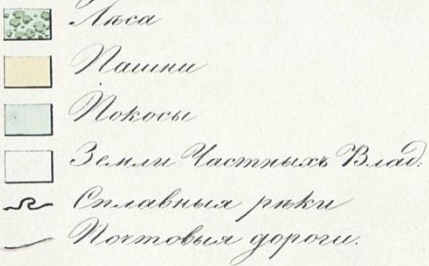 Лѣса
Пашни
Покосы
Земли Частныхъ Влад.
Сплавныя рѣки
Почтовыя дороги.